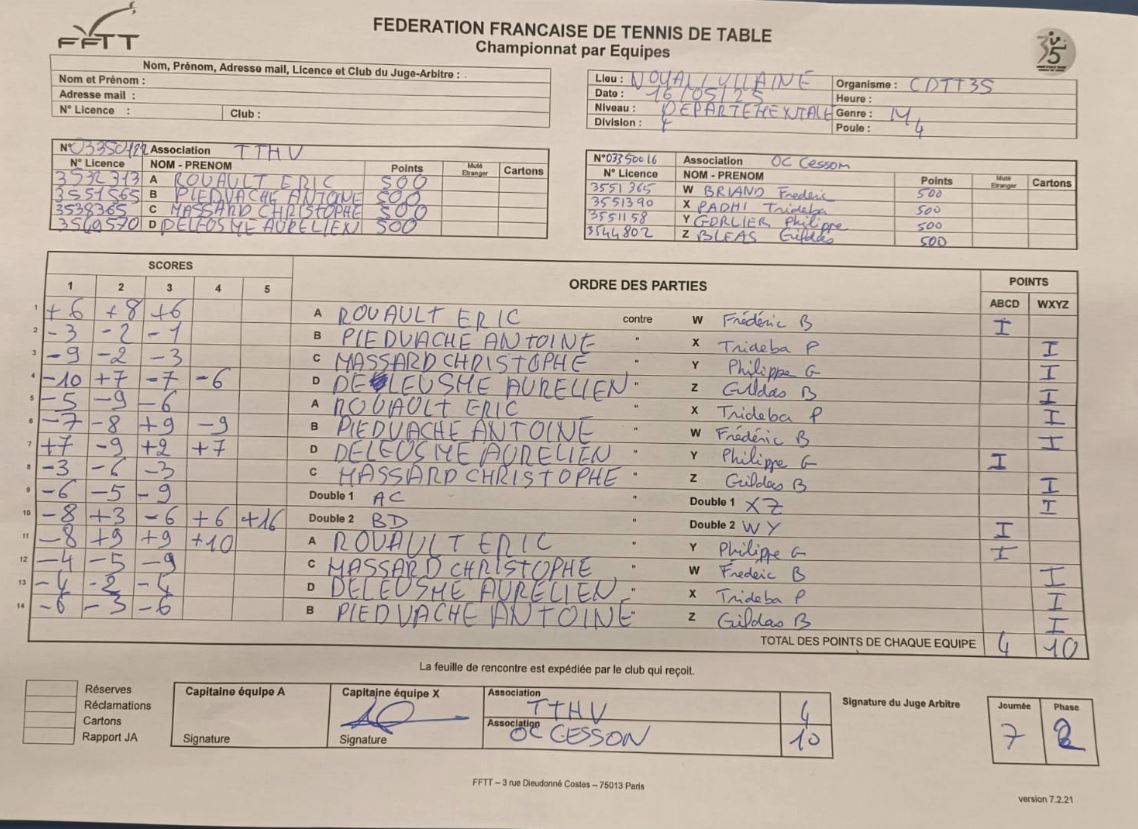 FFTT
FEDERATION FRANCAISE DE TENNIS DE TABLE
Championnat par Equipes
35
Nom, Prénom, Adresse mail, Licence et Club du Juge-Arbitre :
Nom et Prénom :
Adresse mail :
N° Licence : Club :
Lieu : NOYAL/VILAINE Organisme : CDTT35
Date : 16/05/25 Heure :
Niveau : DEPARTEMENTALE Genre : M
Division : Poule : 4
N° 03350422 Association TTHV
N° Licence NOM - PRENOM Points Muté Etranger Cartons
3532713 A ROUAULT ERIC 500
3551565 B PIEDVACHE ANTOINE 500
3538365 C MASSARD CHRISTOPHE 500
3549570 D DELEUSME AURELIEN 500
N° 03350016 Association OC Cesson
N° Licence NOM - PRENOM Points Muté Etranger Cartons
3551365 W BRIAND Frédéric 500
3551390 X PADHI Trideba 500
3551158 Y GORLIER Philippe 500
3544802 Z BLEAS Gildas 500
SCORES ORDRE DES PARTIES POINTS
1 2 3 4 5 ABCD WXYZ
1 +6 +8 +6 A ROUAULT ERIC contre W Frédéric B I
2 -3 -2 -1 B PIEDVACHE ANTOINE " X Trideba P I
3 -9 -2 -3 C MASSARD CHRISTOPHE " Y Philippe G I
4 -10 +7 -7 -6 D DELEUSME AURELIEN " Z Gildas B I
5 -5 -9 -6 A ROUAULT ERIC " X Trideba P I
6 -7 -8 +9 -9 B PIEDVACHE ANTOINE " W Frédéric B I
7 +7 -9 +2 +7 D DELEUSME AURELIEN " Y Philippe G I
8 -3 -6 -3 C MASSARD CHRISTOPHE " Z Gildas B I
9 -6 -5 -9 Double 1 AC " Double 1 XZ I
10 -8 +3 -6 +6 +16 Double 2 BD " Double 2 WY I
11 -8 +9 +9 +10 A ROUAULT ERIC " Y Philippe G I
12 -4 -5 -9 C MASSARD CHRISTOPHE " W Frederic B I
13 -4 -2 -4 D DELEUSME AURELIEN " X Trideba P I
14 -6 -3 -6 B PIEDVACHE ANTOINE " Z Gildas B I
TOTAL DES POINTS DE CHAQUE EQUIPE 4 10
La feuille de rencontre est expédiée par le club qui reçoit.
Réserves
Réclamations
Cartons
Rapport JA
Capitaine équipe A
Signature
Capitaine équipe X
Signature
Association TTHV 4
Association OC CESSON 10
Signature du Juge Arbitre
Journée Phase
7 2
FFTT – 3 rue Dieudonné Costes – 75013 Paris
version 7.2.21